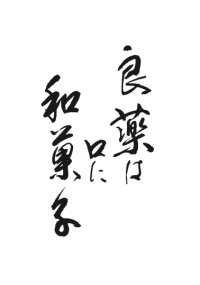 良薬は
口に
和菓子